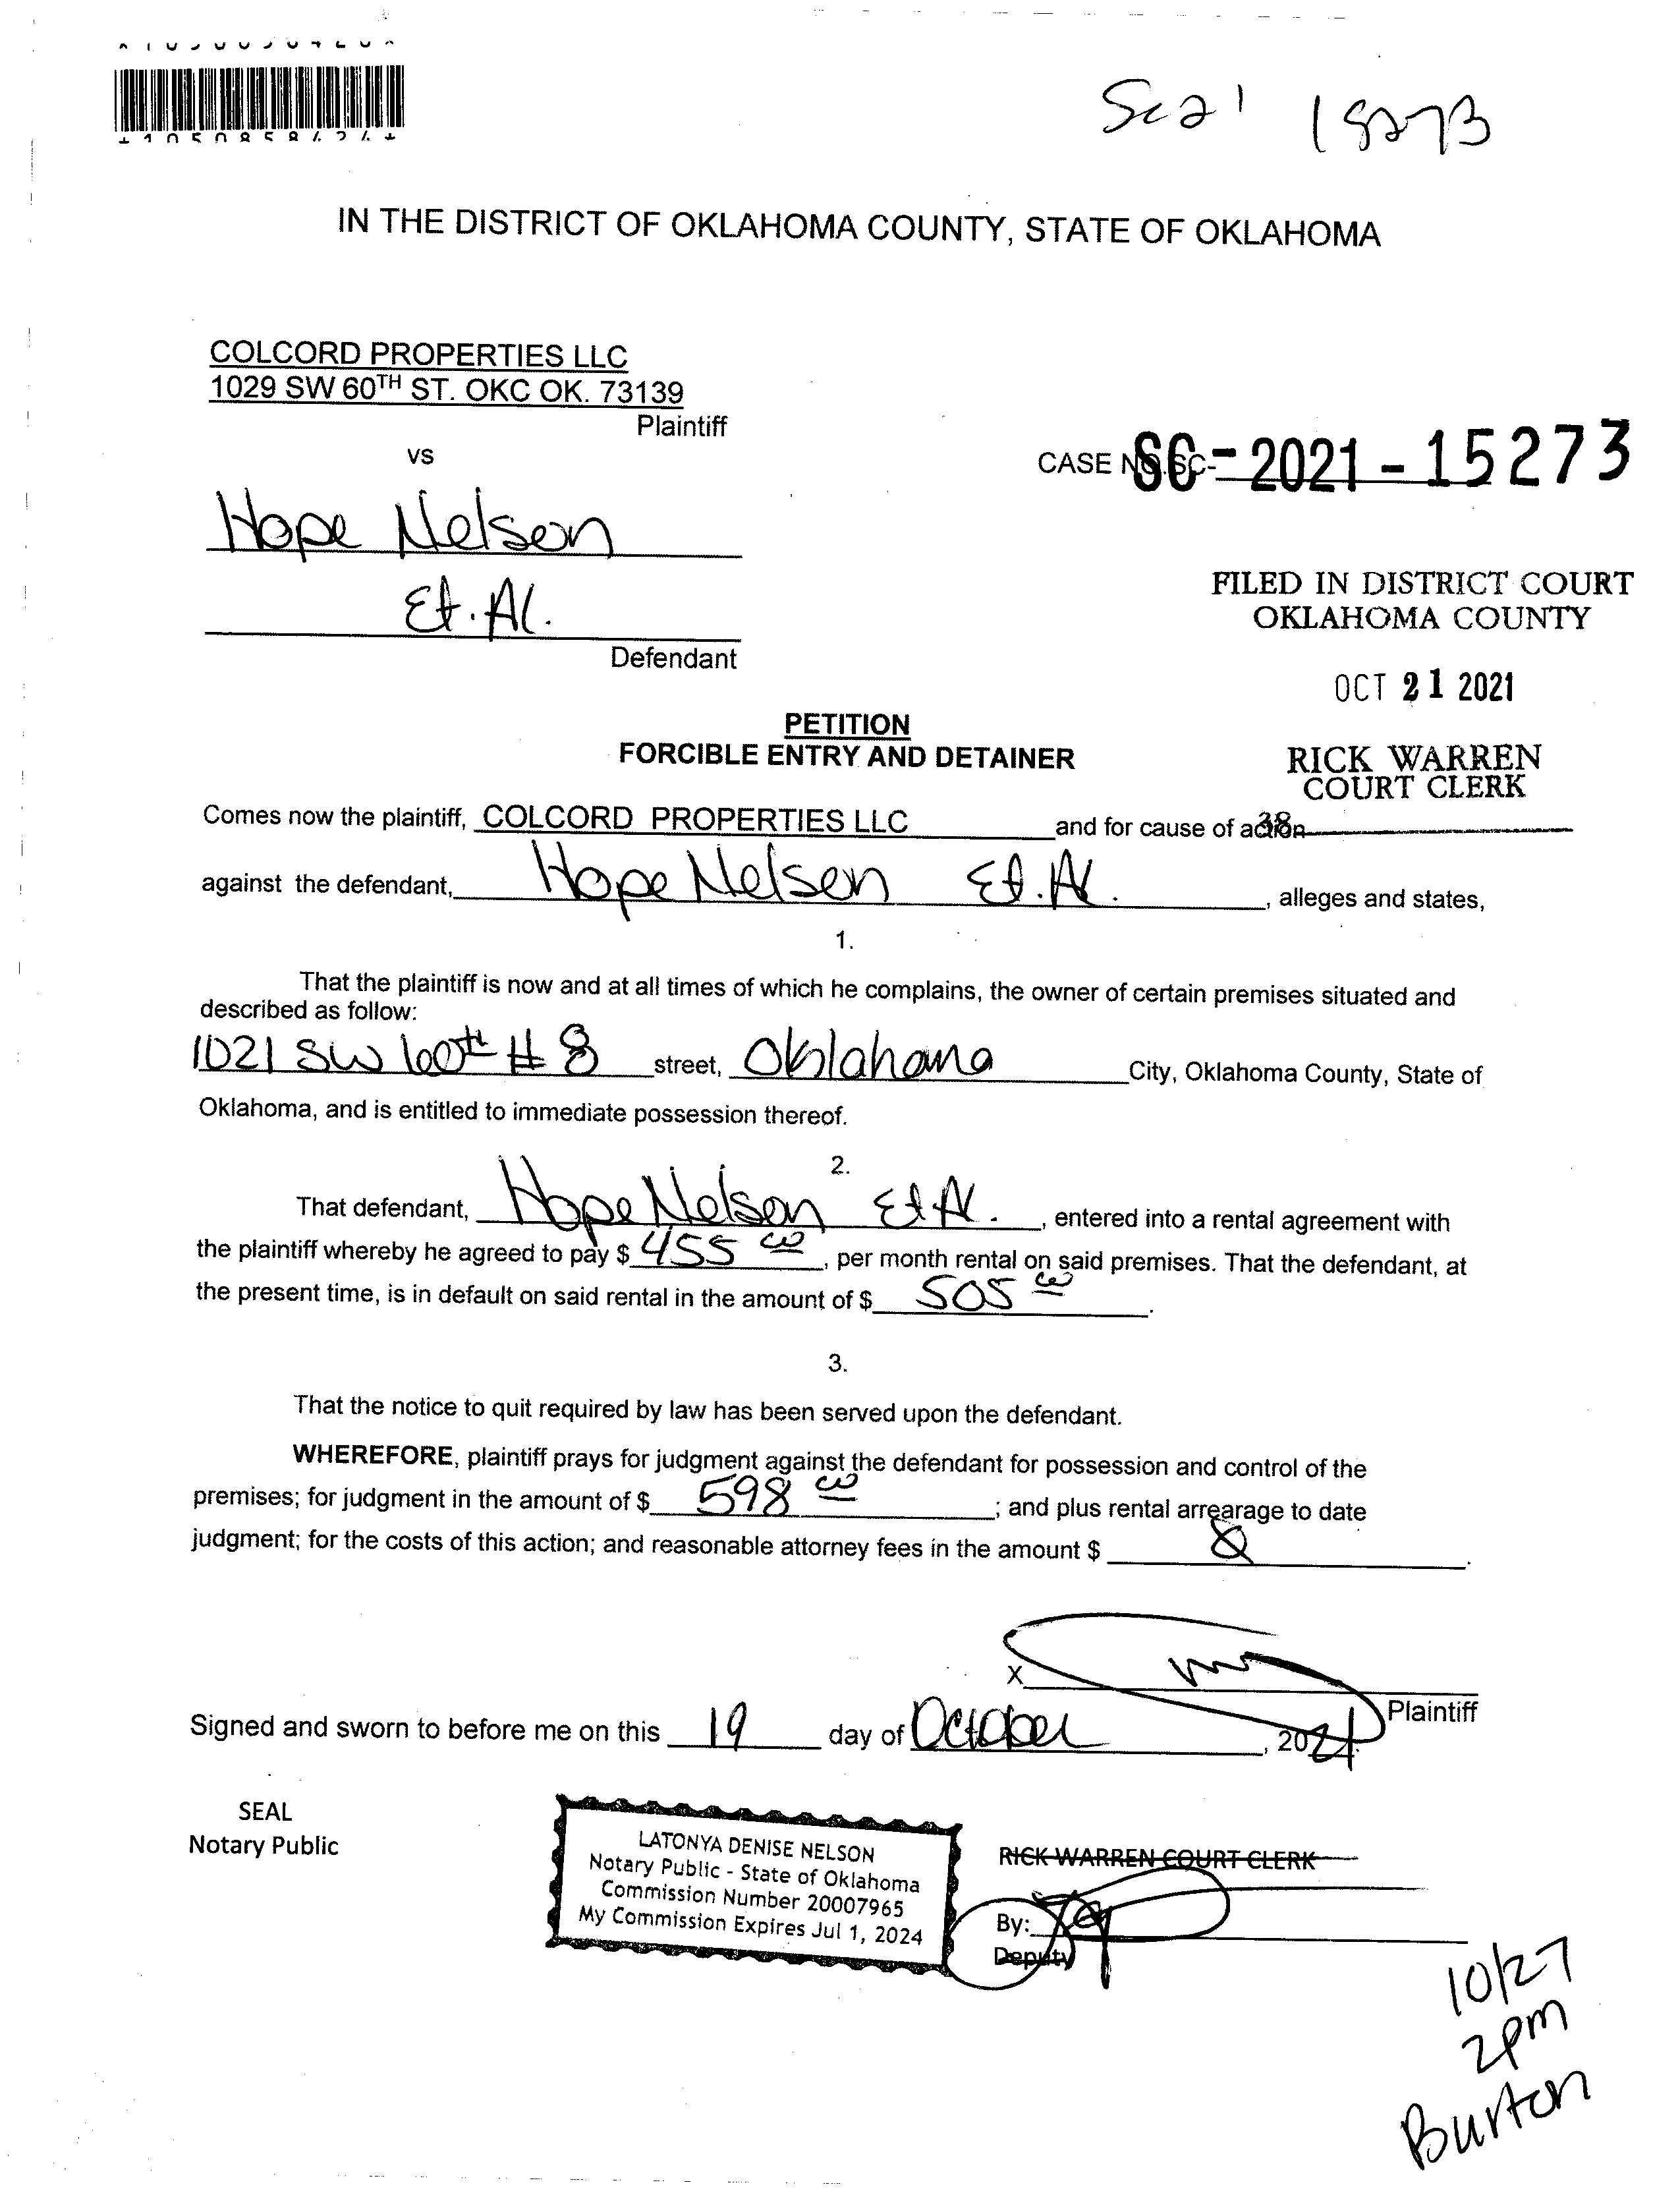 *1050858424*
SC21 15273
IN THE DISTRICT OF OKLAHOMA COUNTY, STATE OF OKLAHOMA
COLCORD PROPERTIES LLC
1029 SW 60TH ST. OKC OK. 73139
Plaintiff
vs
CASE NO. SC-
SC-2021-15273
Hope Nelson
Et. Al.
Defendant
FILED IN DISTRICT COURT
OKLAHOMA COUNTY
OCT 21 2021
PETITION
FORCIBLE ENTRY AND DETAINER
RICK WARREN
COURT CLERK
38
Comes now the plaintiff, COLCORD PROPERTIES LLC and for cause of action
against the defendant, Hope Nelson Et. Al. , alleges and states,
1.
That the plaintiff is now and at all times of which he complains, the owner of certain premises situated and
described as follow:
1021 SW 60th # 8 street, Oklahoma City, Oklahoma County, State of
Oklahoma, and is entitled to immediate possession thereof.
2.
That defendant, Hope Nelson Et Al. , entered into a rental agreement with
the plaintiff whereby he agreed to pay $ 455 00 , per month rental on said premises. That the defendant, at
the present time, is in default on said rental in the amount of $ 505 00 .
3.
That the notice to quit required by law has been served upon the defendant.
WHEREFORE, plaintiff prays for judgment against the defendant for possession and control of the
premises; for judgment in the amount of $ 598 00 ; and plus rental arrearage to date
judgment; for the costs of this action; and reasonable attorney fees in the amount $ .
X
Plaintiff
Signed and sworn to before me on this 19 day of October , 2021.
SEAL
Notary Public
LATONYA DENISE NELSON
Notary Public - State of Oklahoma
Commission Number 20007965
My Commission Expires Jul 1, 2024
RICK WARREN COURT CLERK
By:
Deputy
10/27
2pm
Burton